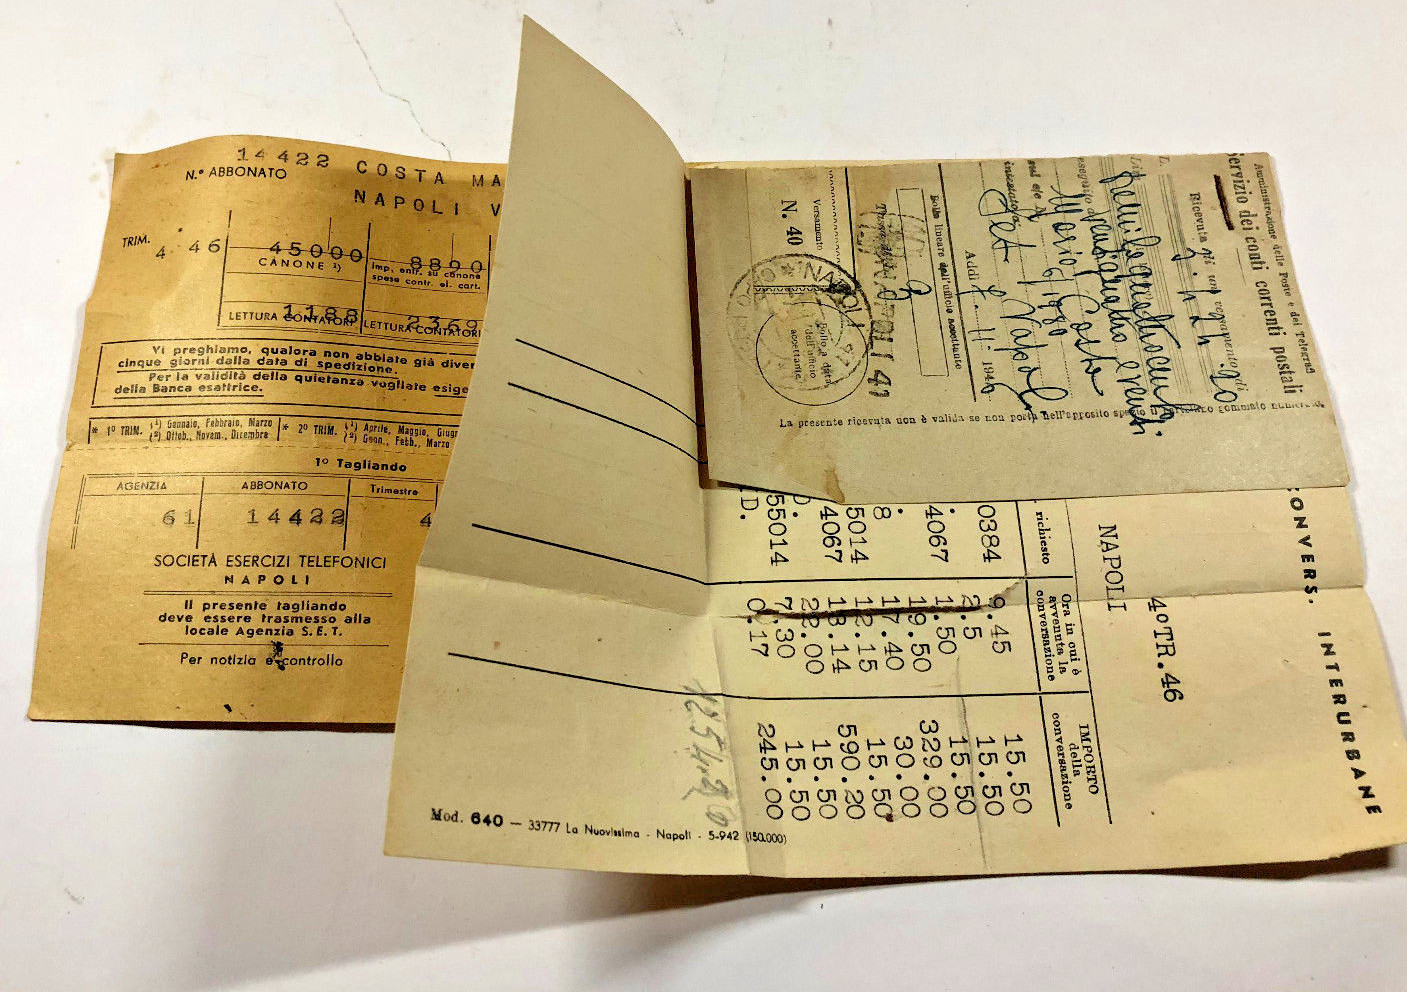 14422 COSTA MA
N.º ABBONATO
NAPOLI V
TRIM.
4 46
45000
8890
CANONE ¹)
imp. entr. su canone
spese contr. el. cart.
1188
2369
LETTURA CONTATORI
LETTURA CONTATORI
Vi preghiamo, qualora non abbiate già diver
cinque giorni dalla data di spedizione.
Per la validità della quietanza vogliate esige
della Banca esattrice.
* 1º TRIM. (¹) Gennaio, Febbraio, Marzo
(²) Ottob., Novem., Dicembre
* 2º TRIM. (¹) Aprile, Maggio, Giugn
(²) Genn., Febb., Marzo
1º Tagliando
AGENZIA
ABBONATO
Trimestre
61
14422
4
SOCIETÀ ESERCIZI TELEFONICI
NAPOLI
Il presente tagliando
deve essere trasmesso alla
locale Agenzia S.E.T.
Per notizia e controllo
Amministrazione delle Poste e dei Telegrafi
Servizio dei conti correnti postali
Ricevuta di un versamento di
L.
eseguito da
Costa
intestato a
Set Napoli
Addì
Bollo lineare dell'ufficio accettante
Tassa
Versamento
N. 40
NAPOLI
Bollo a data
dell'ufficio
accettante
La presente ricevuta non è valida se non porta nell'apposito spazio il cartellino gommato numerato
CONVERS. INTERURBANE
4ºTR.46
NAPOLI
richiesto
Ora in cui è
avvenuta la
conversazione
IMPORTO
della
conversazione
0384 9.45 15.50
. 2.5 15.50
4067 1.50 15.50
. 19.50 329.00
8 17.40 30.00
5014 12.15 15.50
4067 13.14 590.20
D. 22.00 15.50
55014 7.30 15.50
D. 0.17 245.00
Mod. 640 — 33777 La Nuovissima - Napoli - 5-942 (150.000)